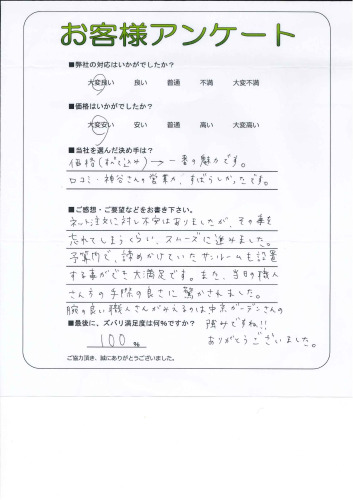 お客様アンケート
■弊社の対応はいかがでしたか?
大変良い 良い 普通 不満 大変不満
■価格はいかがですか?
大変安い 安い 普通 高い 大変高い
■当社を選んだ決め手は?
価格(すべて込み)→一番の魅力です。
口コミ・神谷さんの営業力、すばらしかったです。
■ご感想・ご要望などをお書き下さい。
ネット注文に対し不安はありましたが、その事を
忘れてしまうくらい、スムーズに進みました。
予算内で、諦めかけていたサンルームも設置
する事ができ大満足です。また、当日の職人
さん方の手際の良さに驚かされました。
腕の良い職人さんがみえるのは中京ガーデンさんの
強みですね!!
ありがとうございました。
■最後に、ズバリ満足度は何%ですか?
100 %
ご協力頂き、誠にありがとうございました。